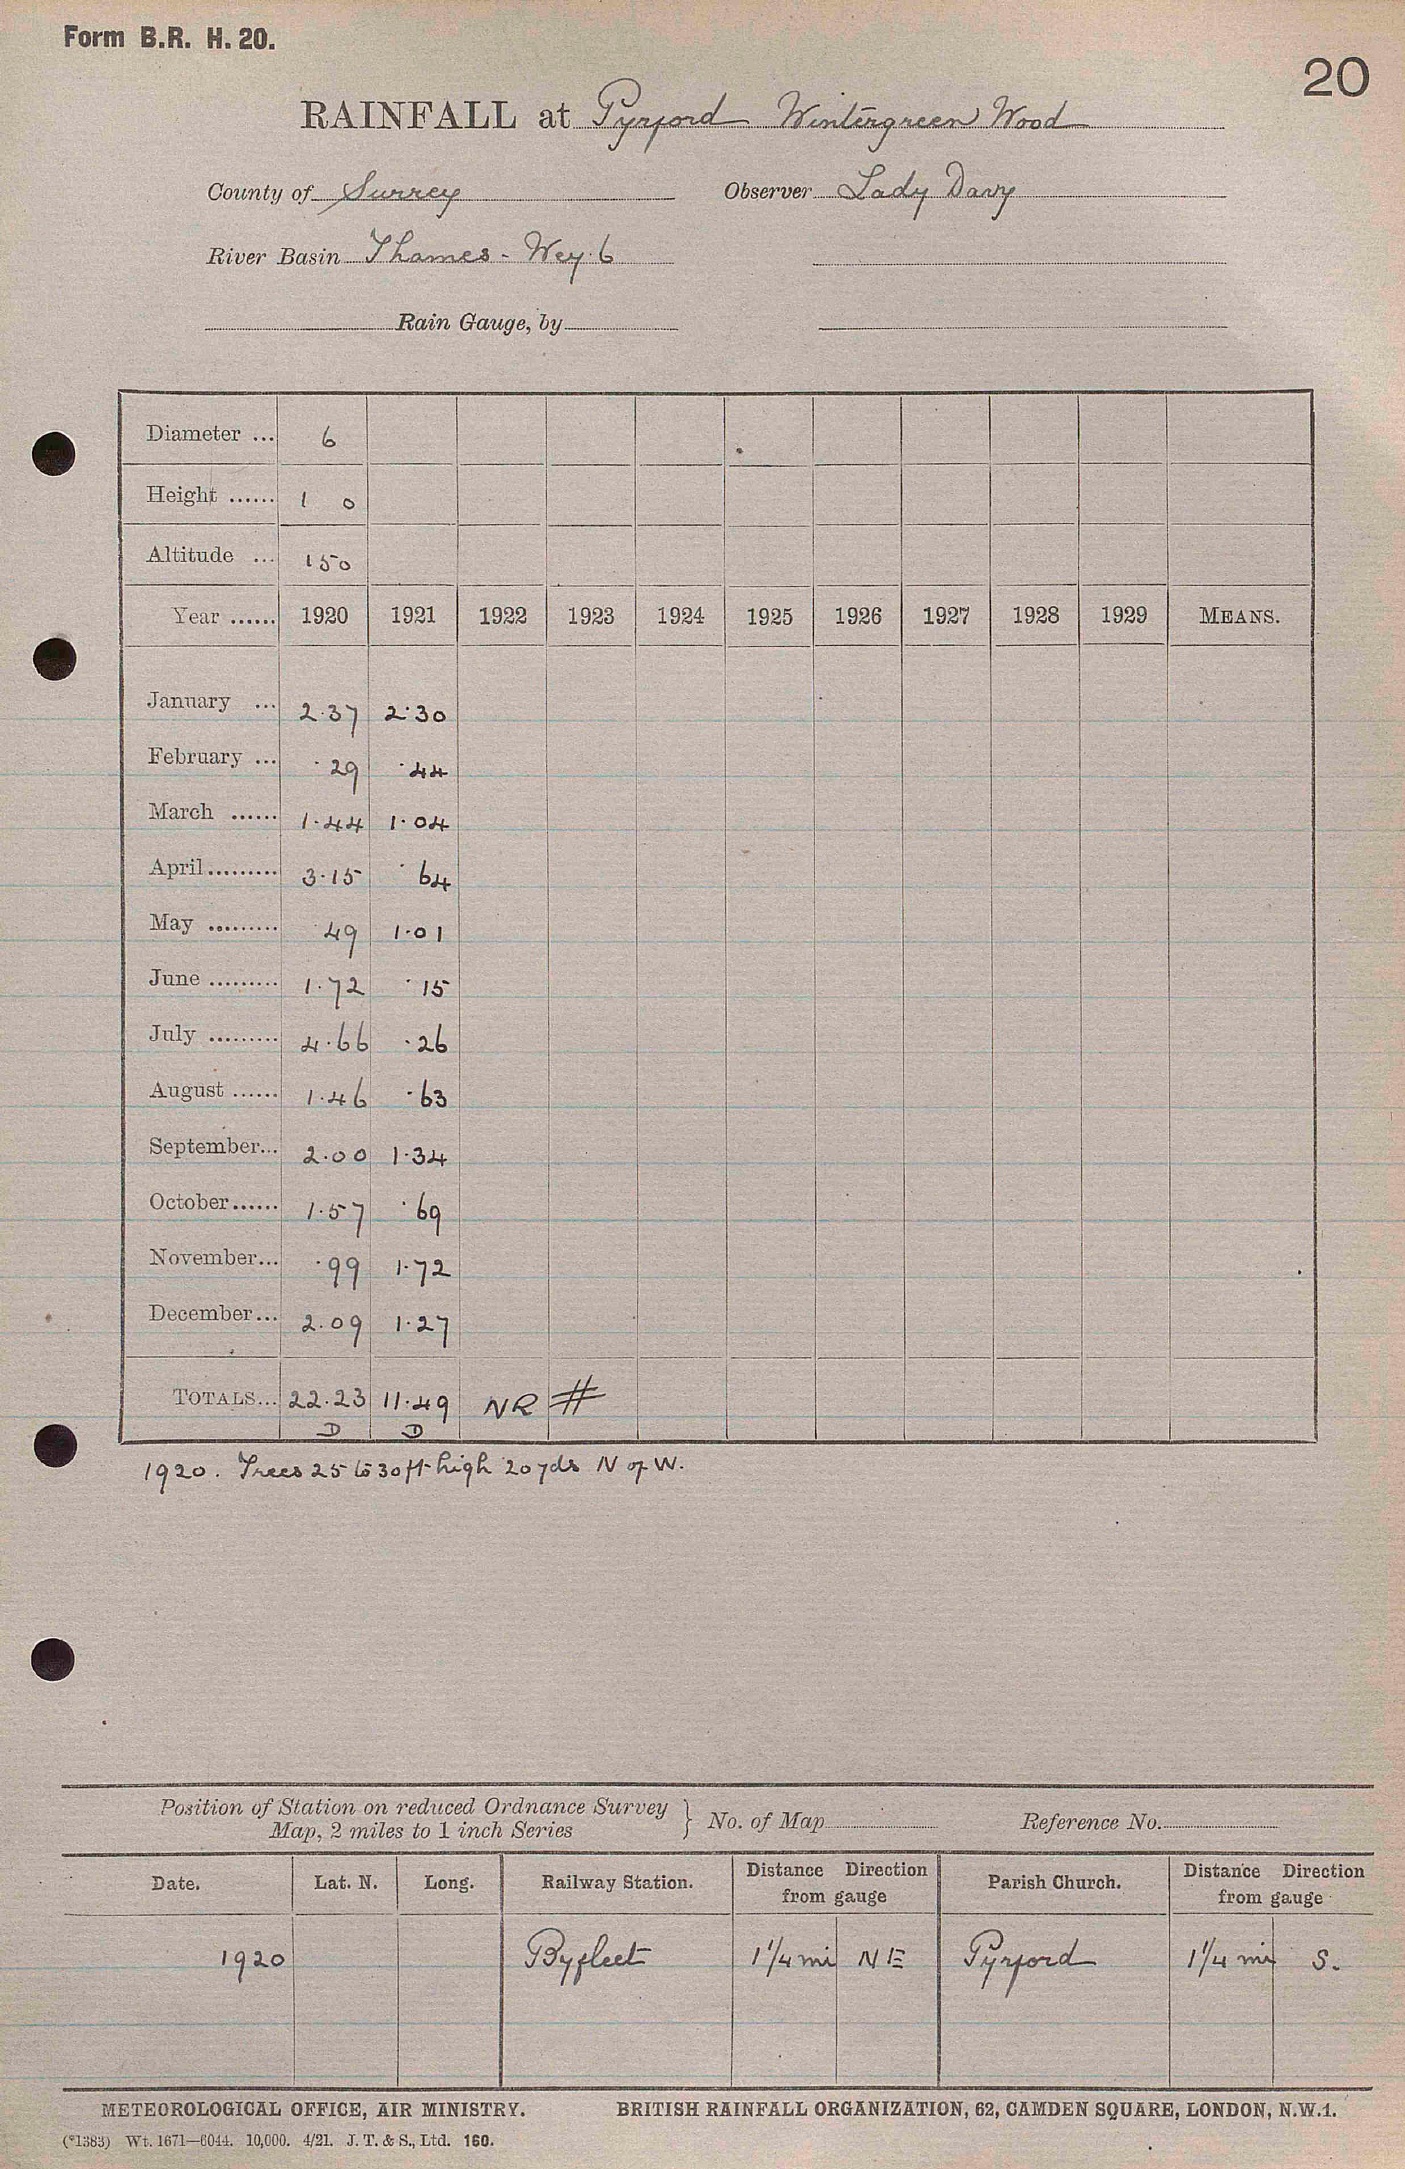 Form B.R. H. 20.
20
RAINFALL at Pyrford Wintergreen Wood
County of Surrey Observer Lady Davy
River Basin Thames - Wey. 6
Rain Gauge, by
Diameter ... 6
Height ...... 1 0
Altitude ... 150
Year ...... 1920 1921 1922 1923 1924 1925 1926 1927 1928 1929 MEANS.
January ... 2.37 2.30
February ... .29 .44
March ...... 1.44 1.04
April ......... 3.15 .64
May ......... .49 1.01
June ......... 1.72 .15
July ......... 4.66 .26
August ...... 1.46 .63
September... 2.00 1.34
October ...... 1.57 .69
November... .99 1.72
December... 2.09 1.27
TOTALS... 22.23 11.49 NR #
D D
1920. Trees 25 to 30 ft high 20 yds N of W.
Position of Station on reduced Ordnance Survey
Map, 2 miles to 1 inch Series } No. of Map Reference No.
Date. Lat. N. Long. Railway Station. Distance Direction from gauge Parish Church. Distance Direction from gauge
1920 Byfleet 1 1/4 mi NE Pyrford 1 1/4 mi S.
METEOROLOGICAL OFFICE, AIR MINISTRY. BRITISH RAINFALL ORGANIZATION, 62, CAMDEN SQUARE, LONDON, N.W.1.
(*1383) Wt. 1671—6044. 10,000. 4/21. J. T. & S., Ltd. 160.